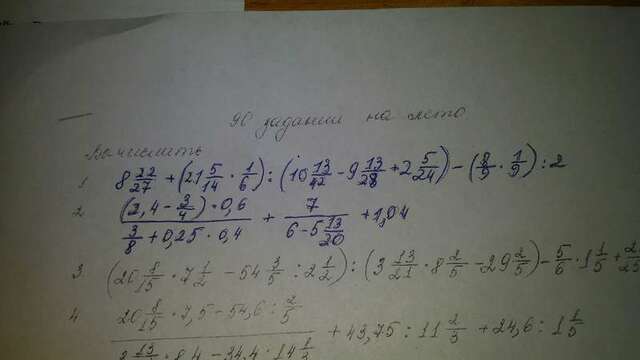 90 задании на лето
Вычислить
1 8 22/27 + (21 5/14 · 1/6) : (10 13/42 - 9 13/28 + 2 5/24) - (8/9 · 1/9) : 2
2 (2,4 - 3/4) · 0,6 / 3/8 + 0,25 · 0,4 + 7 / 6 - 5 13/20 + 1,04
3 (20 8/15 · 7 1/2 - 54 3/5 : 2 1/2) : (3 13/21 · 8 2/5 - 29 2/5) - 5/6 · 1 1/5 +
4 20 8/15 · 7,5 - 54,6 : 2/5 + 43,75 : 11 2/3 + 24,6 : 1 1/5